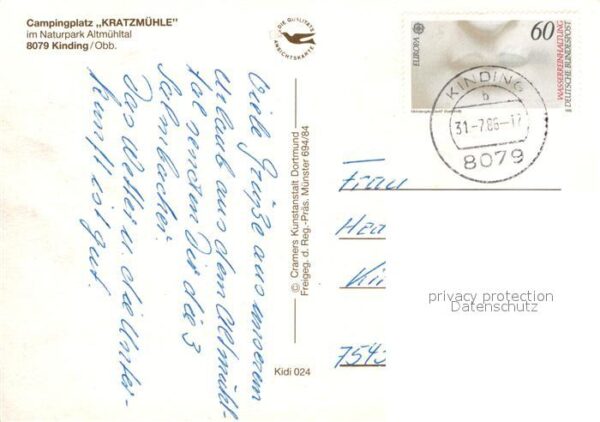 Campingplatz „KRATZMÜHLE"
im Naturpark Altmühltal
8079 Kinding/Obb.
DIE QUALITÄTS
ANSICHTSKARTE
Viele Grüße aus unserem
Urlaub aus dem Altmühl-
tal senden Dir die 3
Salmbacher.
Das Wetter u. die Unter-
kunft ist gut.
© Cramers Kunstanstalt Dortmund
Freigeg. d. Reg.-Präs. Münster 694/84
Kidi 024
EUROPA
60
WASSERREINHALTUNG
DEUTSCHE BUNDESPOST
KINDING
b
31-7.86-17
8079
Frau
Hea
Kin
7543
privacy protection
Datenschutz